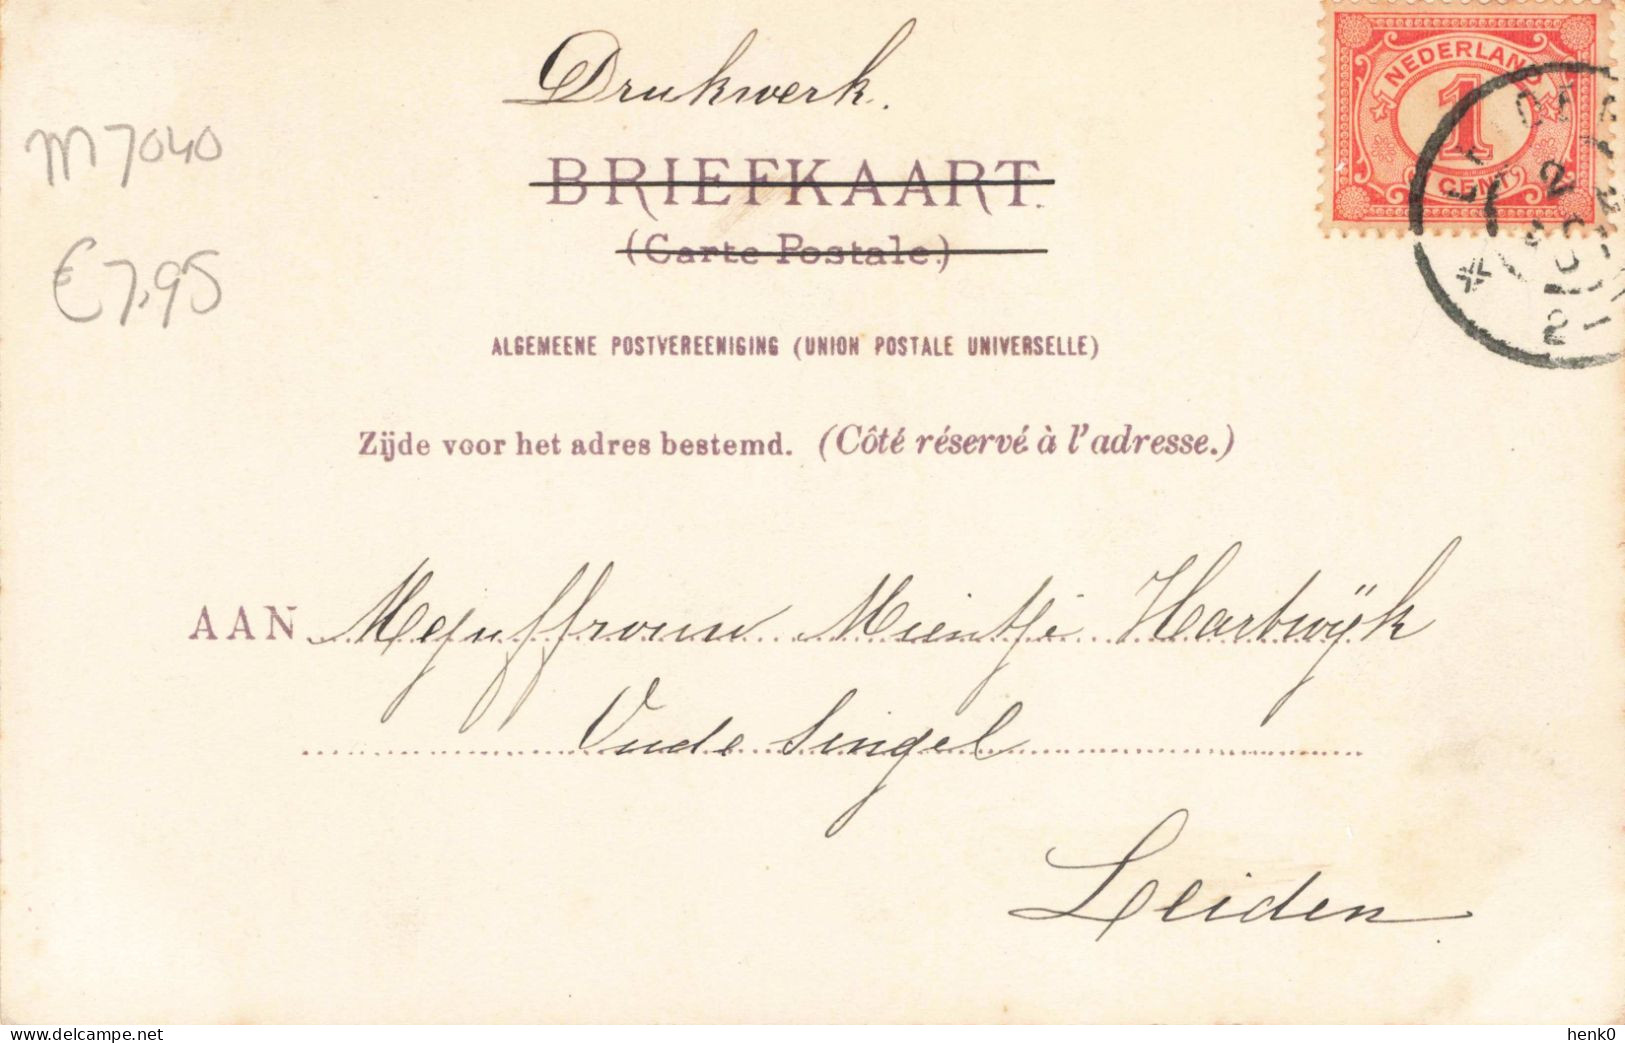 Drukwerk.
M 7040
BRIEFKAART.
(Carte Postale.)
€ 7,95
NEDERLAND
1
CENT
ALGEMEENE POSTVEREENIGING (UNION POSTALE UNIVERSELLE)
Zijde voor het adres bestemd. (Côté réservé à l'adresse.)
AAN Mejuffrouw Mientje Hartwijk
Oude Singel
Leiden
henk0